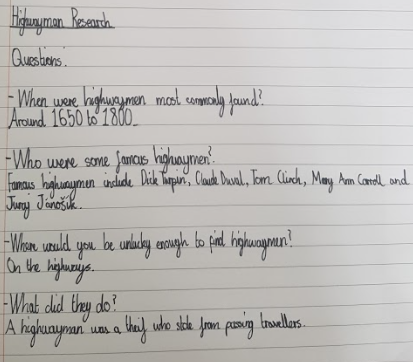 Highwayman Research
Questions:
- When were highwaymen most commonly found?
Around 1650 to 1800.
- Who were some famous highwaymen?
Famous highwaymen include Dick Turpin, Claude Duval, Tom Clinch, Mary Ann Carroll and
Juraj Jánošík.
- Where would you be unlucky enough to find highwaymen?
On the highways.
- What did they do?
A highwayman was a theif who stole from passing travellers.